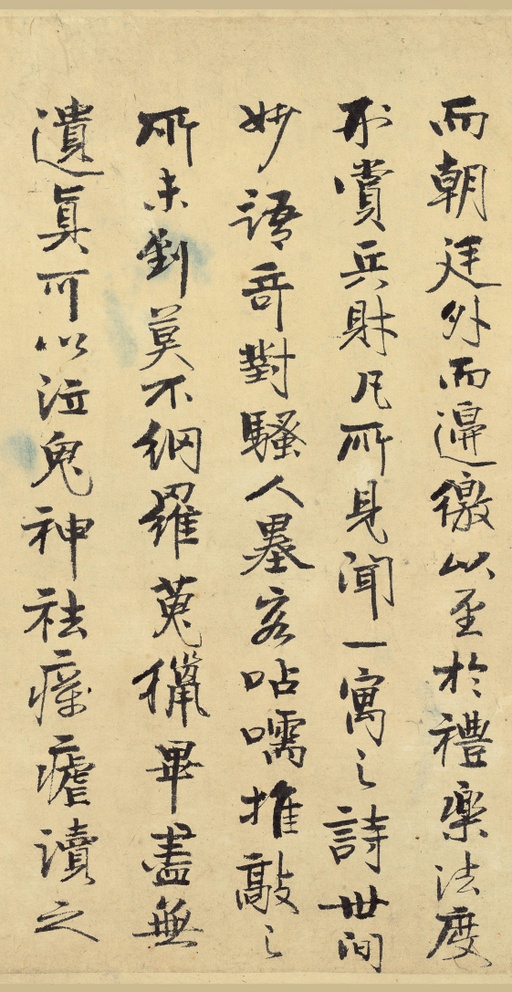 而朝廷外而邊徼以至於禮樂法度
刑賞兵財凡所見聞一寓之詩世間
妙語奇對騷人墨客呫嚅推敲之
所未到莫不網羅蒐獵畢盡無
遺真可以泣鬼神祛瘧癘讀之